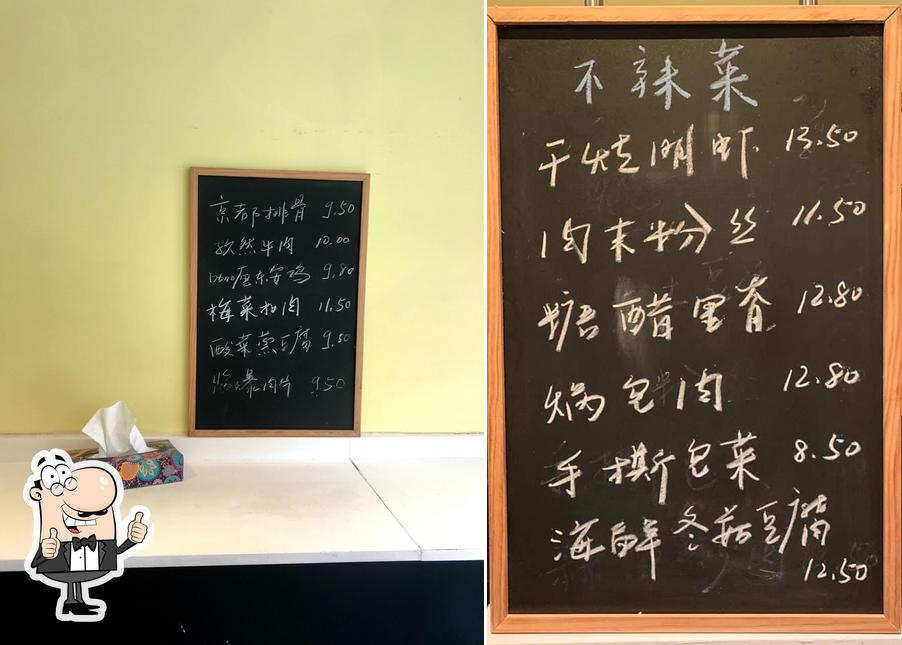 京都排骨 9.50
孜然牛肉 10.00
咖喱东安鸡 9.80
梅菜扣肉 11.50
酸菜蒸豆腐 9.50
爆肉片 9.50
不辣菜
干烧明虾 13.50
肉末粉丝 11.50
糖醋里脊 12.80
焗包肉 12.80
手撕包菜 8.50
海鲜冬菇豆腐
12.50